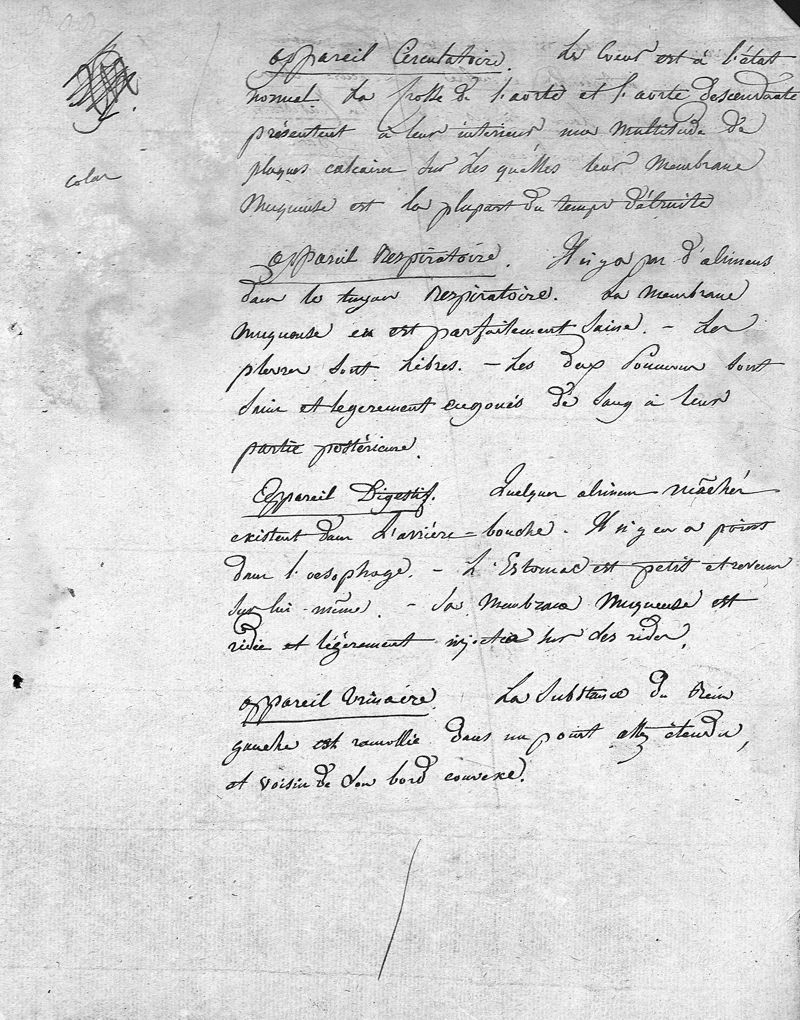 appareil Circulatoire. Le Coeur est à l'état
normal. La Crosse de l'aorte et l'aorte descendante
présentent à leur intérieur une Multitude de
plaques calcaires sur Lesquelles leur Membrane
Muqueuse est la plupart du temps détruite
colas
appareil Respiratoire. Il n'y a pas d'alimens
dans le tuyau Respiratoire. La membrane
muqueuse en est parfaitement saine. - Les
plevres sont libres. - Les deux Poumons sont
sains et legerement engoués de sang à leur
partie postérieure.
Appareil Digestif. Quelques alimens mâchés
existent dans L'arrière-bouche. Il n'y en a point
dans l'oesophage. - L'Estomac est petit et revenu
sur lui-même. - Sa Membrane Muqueuse est
ridée et légèrement injectée sur ses rides.
appareil Urinaire. La Substance du Rein
gauche est ramollie dans un point assez étendu,
et voisin de son bord convexe.